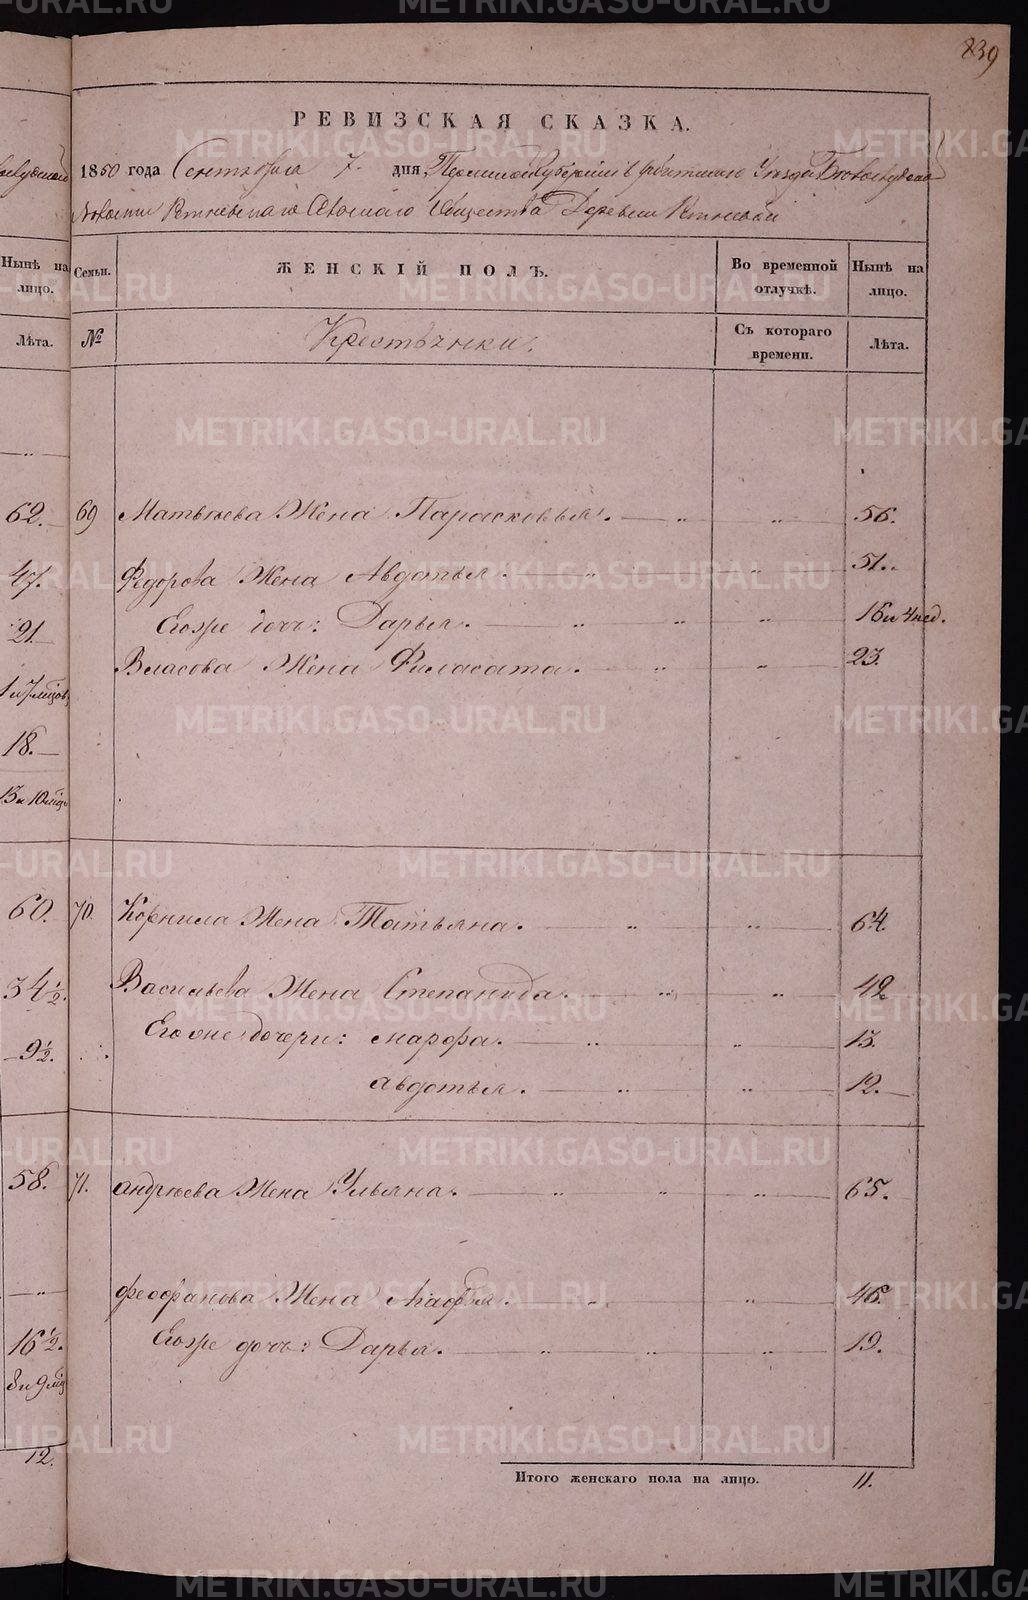 839
РЕВИЗСКАЯ СКАЗКА.
1850 года Сентября 7. дня, Пермской Губернии Ирбитского Уезда
Волости Сельского Общества Деревни
Нынѣ на лицо.
Семьи.
ЖЕНСКІЙ ПОЛЪ.
Во временной отлучкѣ.
Нынѣ на лицо.
Лѣта.
№
Крестьянки.
Съ котораго времени.
Лѣта.
62. 69 Матвѣева Жена Парасковья. 56.
47. Федорова Жена Авдотья. 51.
21 Егоже дочь: Дарья. 16 и 4 нед.
Власова Жена Филасата. 23.
1 и 7 мцов
18.
13 и 10 мцъ
60. 70. Корнила Жена Татьяна. 64.
34½. Васильева Жена Степанида. 42.
9½. Егоже дочери: Марфа. 13.
Авдотья. 12.
58. 71. Андрѣева Жена Ульяна. 65.
Феофанова Жена Агафья. 46.
16½. Егоже дочь: Дарья. 19.
8 и 9 мцъ
12.
Итого женскаго пола на лицо. 11.
METRIKI.GASO-URAL.RU